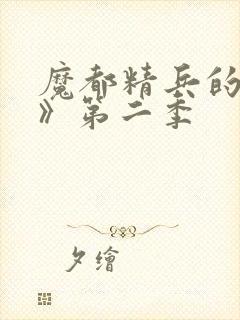 魔都精兵的
》第二季
夕繪